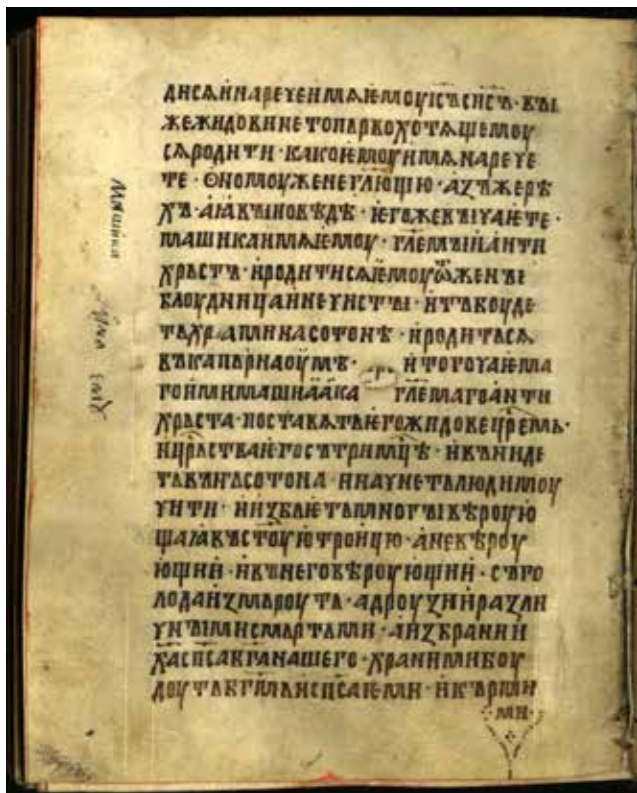 дисѧ и нарече имѧ ѥмоу ıс҃ъ сп҃съ · въı
же жидовине топьрво хотѧщемоу
сѧ родити · како ѥмоу имѧ нарече
те · ѻномоу же не гл҃ющю · азъ же рѣ
хъ · ꙗкъı повѣдѣ · ѥгоже въı чаѥте ·
машика имѧ ѥмоу · гл҃емъıи анти
хрьстъ · и родитисѧ ѥмоу ѿ женъı
блоудница и нечистъı · и тъ боуде
тъ храмина сотонѣ · и родитьсѧ
въ капьрнаоумѣ · и того чаѥма
го ими машиаака гл҃емаго анти
хрьста · поставѧть ѥго жидове цр҃емь ·
и цр҃ства ѥго съ три мц҃ѣ · и въниде
тъ в нь сотона · и начнеть людимоу
чити · и избьѥть многъı вѣроую
щаꙗ въ ст҃оую троицю · а не вѣроу
ющии · и въ него вѣроующии · съ го
лода измьроуть · а дроузии разли
чнъıми смьртьми · а избрании
ха сп҃са б҃а нашего · храними боу
доуть б҃гмь и сп҃саѥми · и кърмли
ми ·
Машика
имѧ ѥмоу